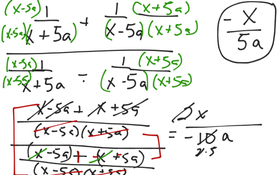 (x-5a) 1 / (x-5a) x+5a + 1 (x+5a) / x-5a (x+5a)
(x-5a) 1 / (x-5a) x+5a - 1 (x+5a) / (x-5a) (x+5a)
- x / 5a
x-5a + x+5a / (x-5a)(x+5a)
(x-5a) + x+5a / (x-5a)(x+5a)
= 2x / -10a
2·5